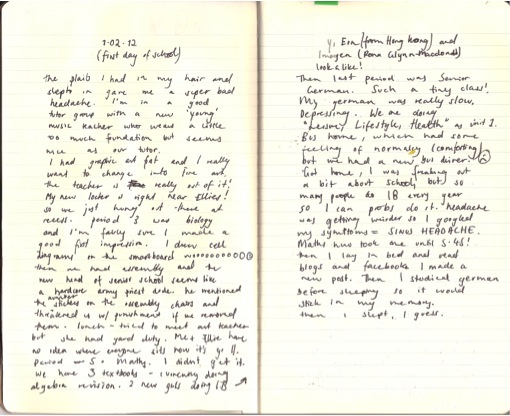 1·02·12
(first day of school)
the plaits I had in my hair and
slept in gave me a super bad
headache. I'm in a good
tutor group with a new 'young'
music teacher who wears a little
too much foundation but seems
nice as our tutor.
I had graphic art fat and I really
want to change into fine art,
the teacher is really out of it!
My new locker is right near Ellies!
so we just hung out there at
recess. period 3 was biology
and I'm fairly sure I made a
good first impression. I drew cell
diagrams on the smartboard
then we had assembly and the
new head of senior school seems like
a hardcore army priest dude. he mentioned
the number stickers on the assembly chairs and
threatened us w/ punishment if we removed
them. lunch - tried to meet art teacher
but she had yard duty. Me & Ellie have
no idea where everyone sits now it's yr 11.
period 5 = Maths. I didn't get it.
We have 3 textbooks - currently doing
algebra revision. 2 new girls doing IB
Eva (from Hong Kong) and
Imogen (Rona Glynn-Macdonald)
look alike!
Then last period was Senior
German. Such a tiny class!
My german was really slow,
Depressing. We are doing
"Lifestyle, Health" as unit 1.
Bus home, which had some
feeling of normalcy (comforting)
but we had a new bus driver.
Got home, I was freaking out
a bit about school but so
many people do IB every year
so I can probs do it. headache
was getting weirder so I googled
my symptoms = SINUS HEADACHE.
Maths hwo took me until 5:45!
then I lay in bed and read
blogs and facebooks I made a
new post. Then I studied german
before sleeping so it would
stick in my memory.
then I slept, I guess.